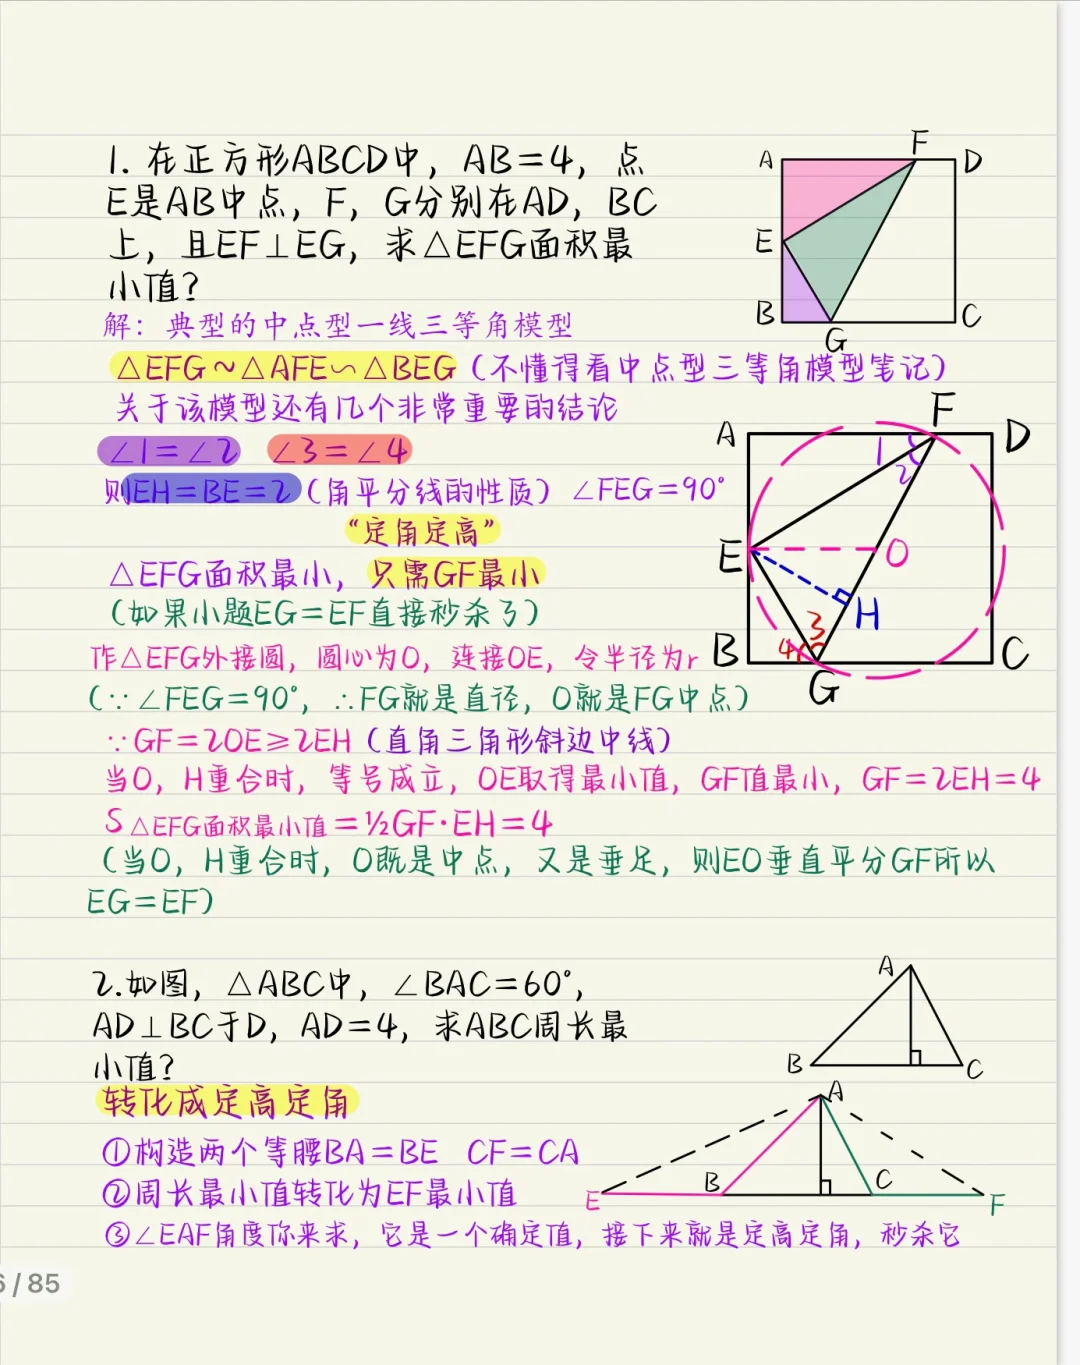 1. 在正方形ABCD中，AB=4，点
E是AB中点，F，G分别在AD，BC
上，且EF⊥EG，求△EFG面积最
小值？
A
F
D
E
B
G
C
解：典型的中点型一线三等角模型
△EFG~△AFE∽△BEG（不懂得看中点型三等角模型笔记）
关于该模型还有几个非常重要的结论
∠1=∠2 ∠3=∠4
则EH=BE=2（角平分线的性质）∠FEG=90°
“定角定高”
△EFG面积最小，只需GF最小
（如果小题EG=EF直接秒杀了）
作△EFG外接圆，圆心为O，连接OE，令半径为r
（∵∠FEG=90°，∴FG就是直径，O就是FG中点）
∵GF=2OE≥2EH（直角三角形斜边中线）
当O，H重合时，等号成立，OE取得最小值，GF值最小，GF=2EH=4
S△EFG面积最小值=½GF·EH=4
（当O，H重合时，O既是中点，又是垂足，则EO垂直平分GF所以
EG=EF）
A
F
D
1
2
E
O
H
3
4
B
G
C
2.如图，△ABC中，∠BAC=60°，
AD⊥BC于D，AD=4，求ABC周长最
小值？
A
B
C
转化成定高定角
①构造两个等腰BA=BE CF=CA
②周长最小值转化为EF最小值
③∠EAF角度你来求，它是一个确定值，接下来就是定高定角，秒杀它
A
E
B
C
F
6/85